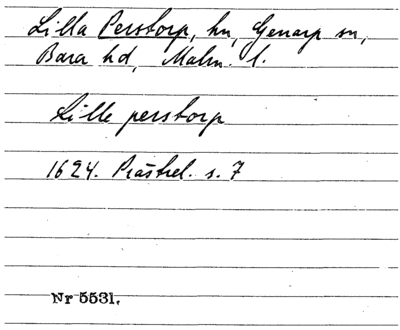 Lilla Perstorp, hn, Genarp sn,
Bara hd, Malm. l.
Lille perstorp
1624. Prästrel. s. 7
Nr 5531.